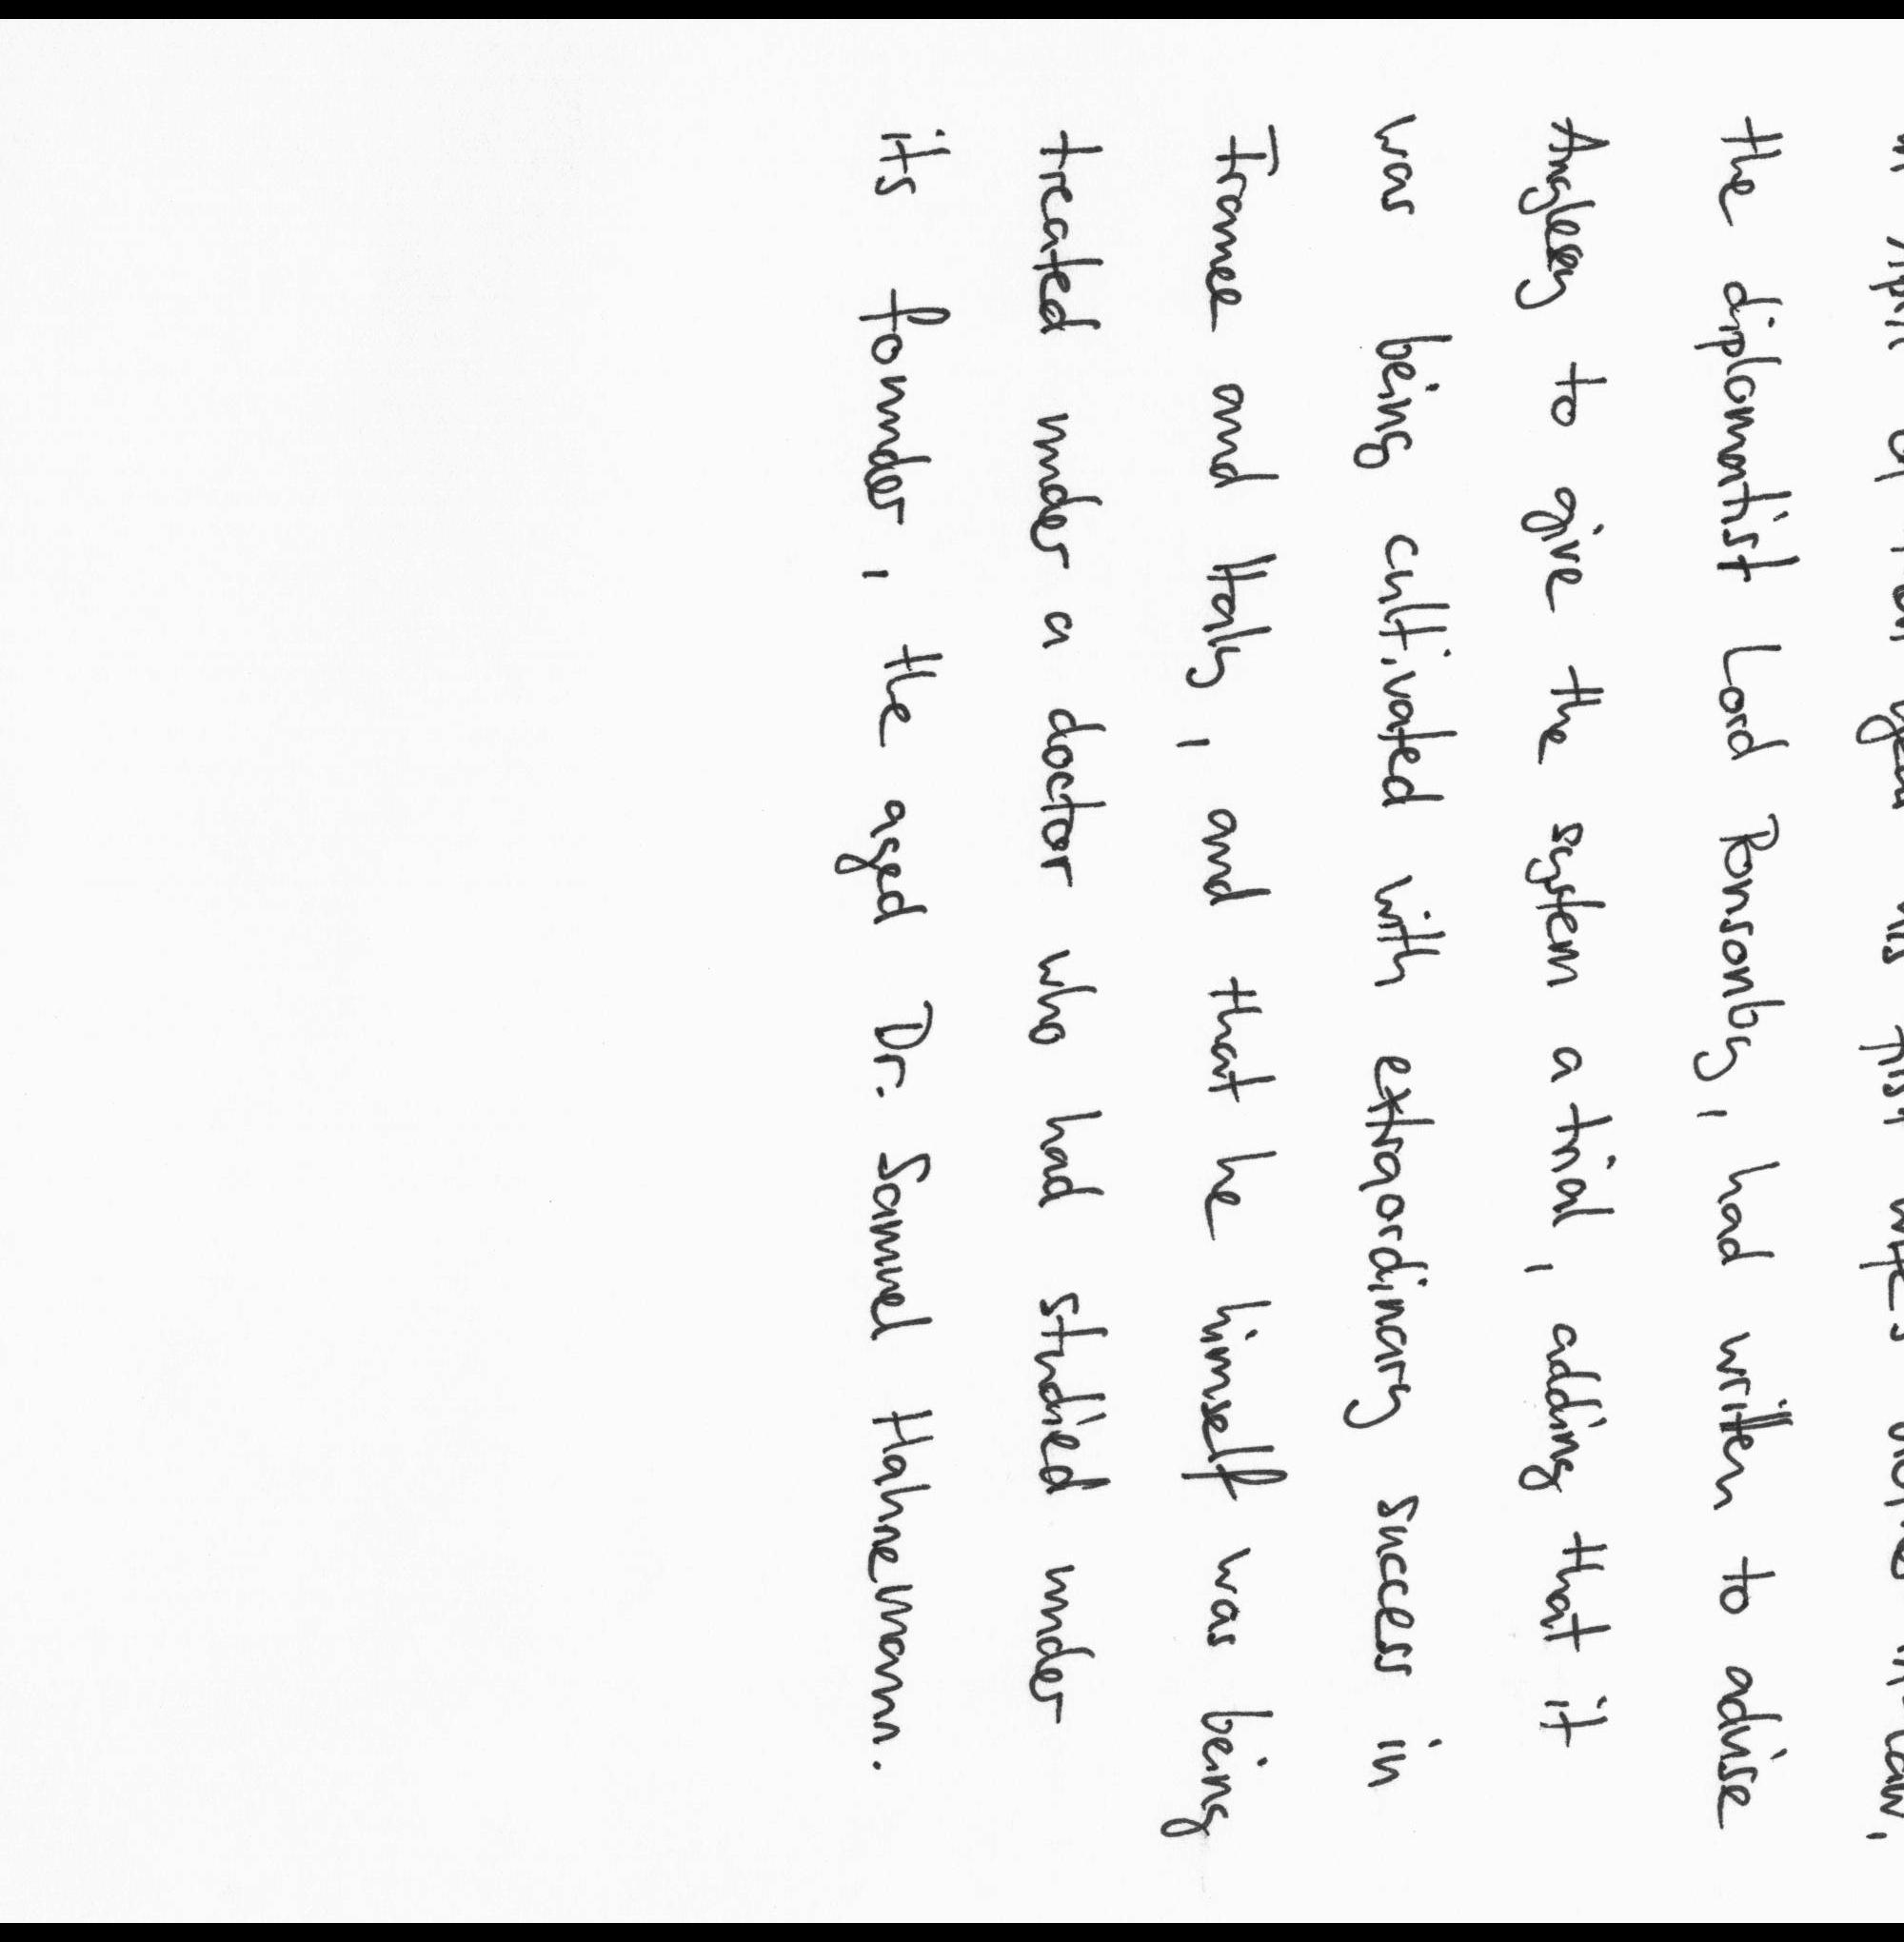 in April of that year his first wife's uncle in-law,
the diplomatist Lord Ponsonby, had written to advise
Anglesey to give the system a trial, adding that it
was being cultivated with extraordinary success in
France and Italy, and that he himself was being
treated under a doctor who had studied under
its founder, the aged Dr. Samuel Hahnemann.